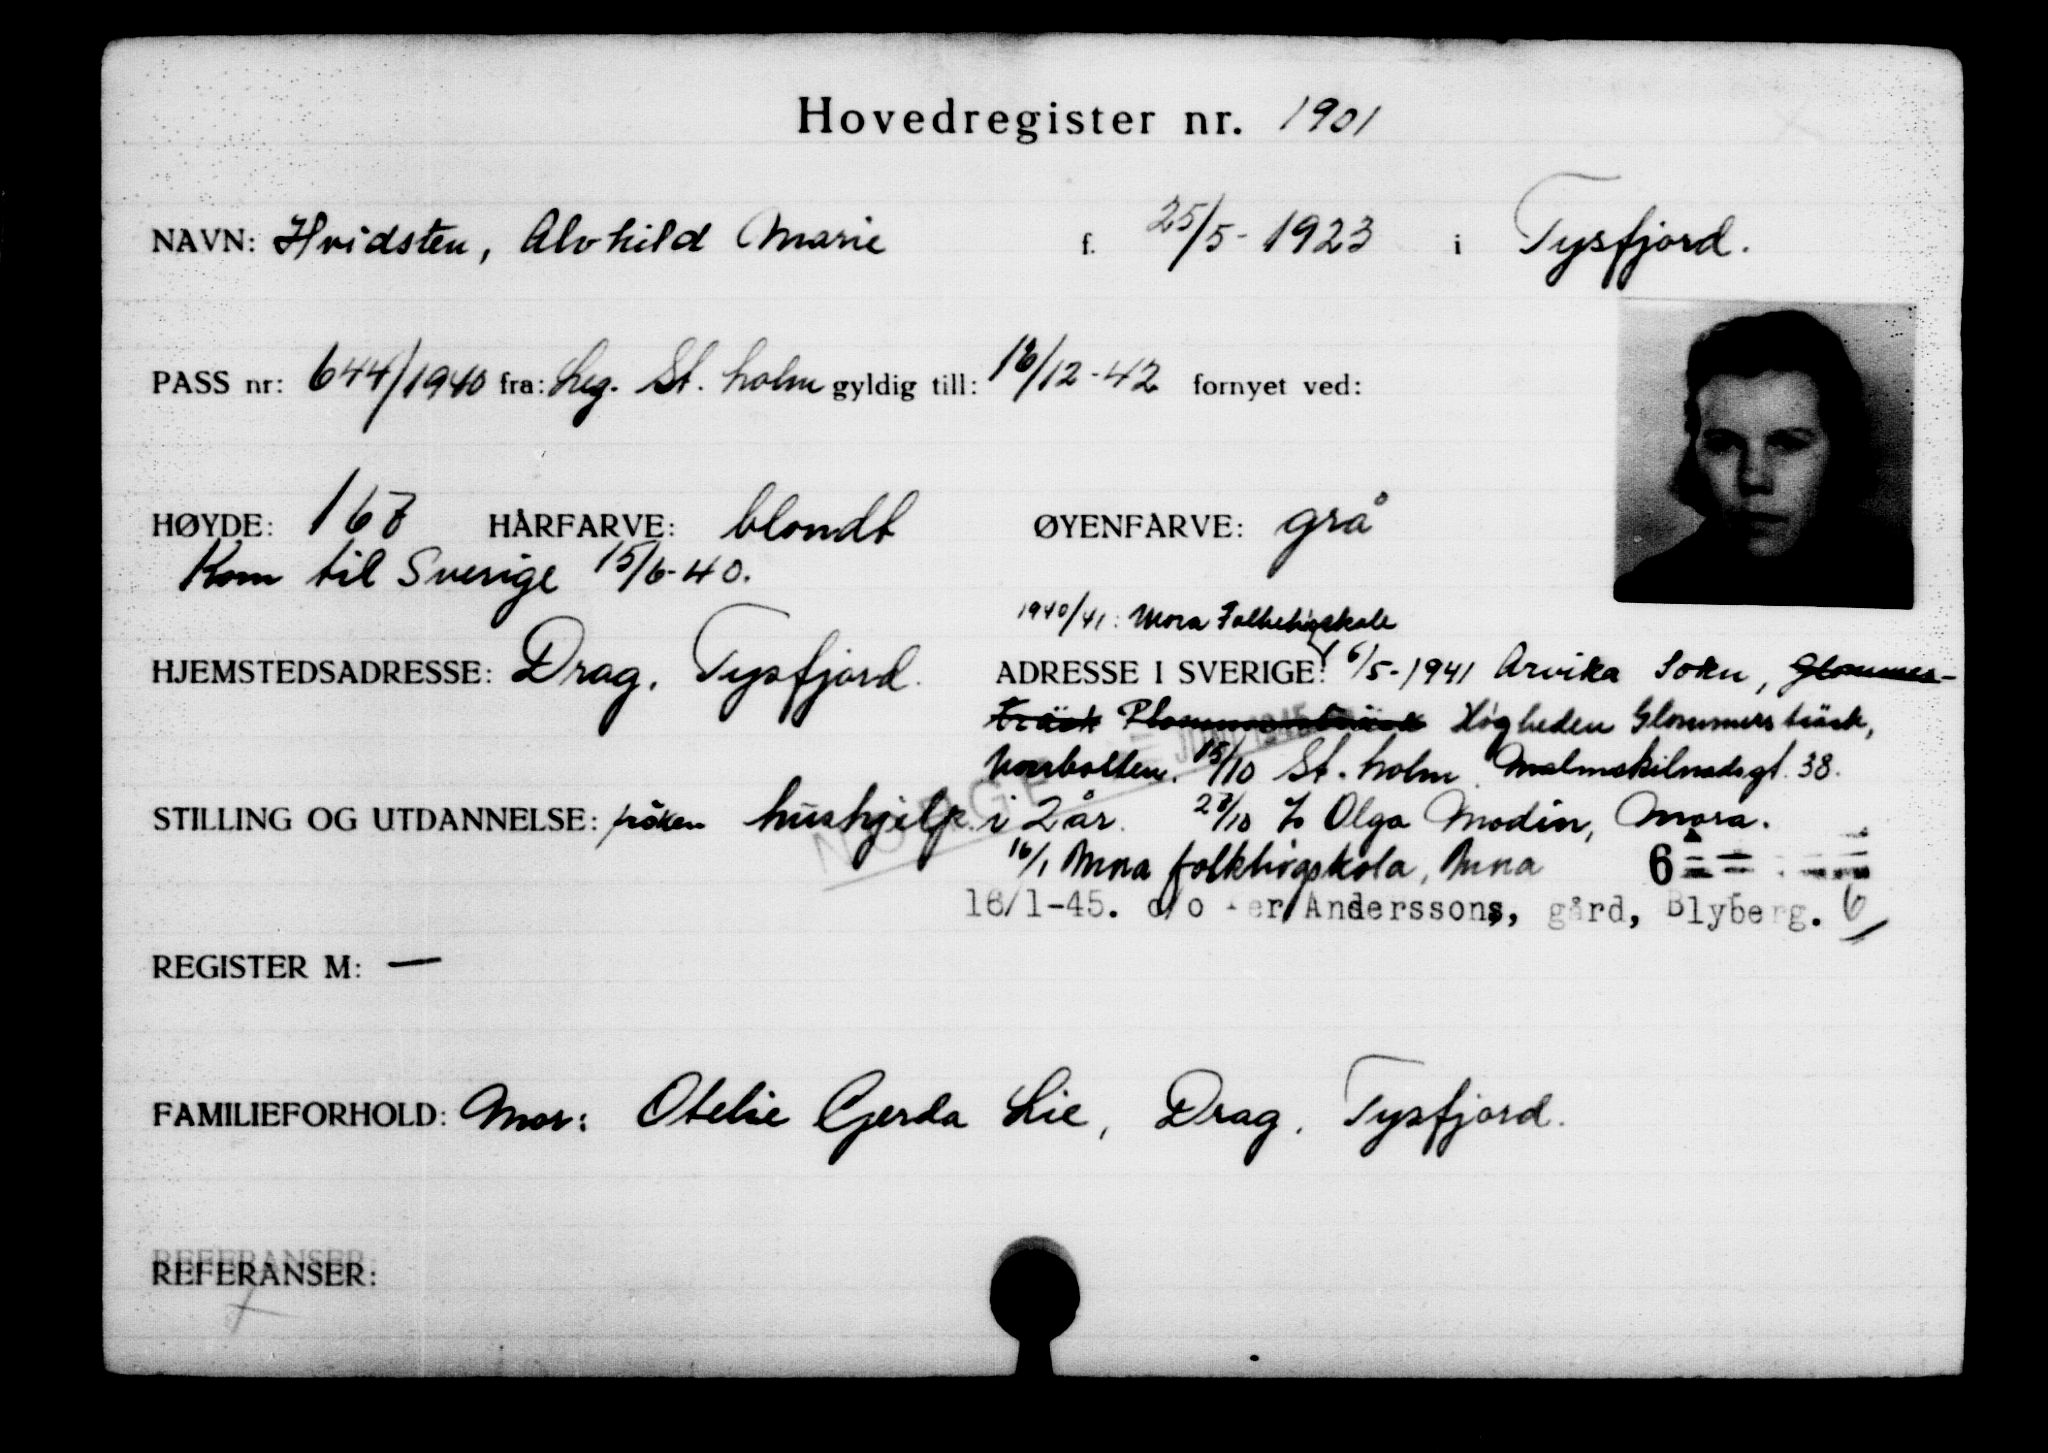 Hovedregister nr. 1901
NAVN: Hvidsten, Alvhild Marie f. 25/5-1923 i Tysfjord.
PASS nr: 644/1940 fra: Leg. St. holm gyldig till: 16/12-42 fornyet ved:
HØYDE: 167 HÅRFARVE: blondt ØYENFARVE: grå
Kom til Sverige 15/6-40.
1940/41: Mora Folkehøgskole
HJEMSTEDSADRESSE: Drag, Tysfjord. ADRESSE I SVERIGE: 6/5-1941 Arvika Sokn, Glommers-
träsk Høgheden Glommersträsk,
Norrbotten. 15/10 St. holm Malmskilnadsgt. 38.
STILLING OG UTDANNELSE: frøken hushjelp i 2 år. 27/10 Olga Modin, Mora.
NORGE JUNI 1945
16/1 Mora folkhøgskola, Mora 6
16/1-45. c/o Per Anderssons, gård, Blyberg. 6
REGISTER M: —
FAMILIEFORHOLD: Mor: Otelie Gerda Lie, Drag, Tysfjord.
REFERANSER: